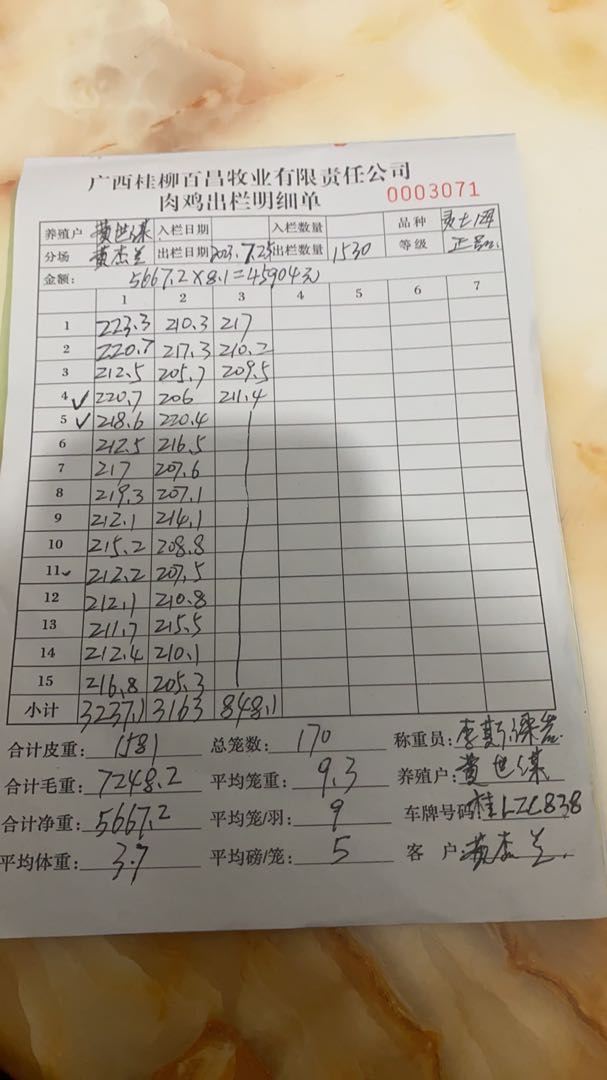 广西桂柳百昌牧业有限责任公司
肉鸡出栏明细单 0003071
养殖户 黄世谋 入栏日期 入栏数量 品种
分场 黄杰兰 出栏日期 2023.7.25 出栏数量 1530 等级 正品
金额: 5667.2×8.1=45904元
1 2 3 4 5 6 7
1 223.3 210.3 217
2 220.7 217.3 210.2
3 212.5 205.7 209.5
4 ✓ 220.7 206 211.4
5 ✓ 218.6 220.4
6 212.5 216.5
7 217 207.6
8 219.3 207.1
9 212.1 214.1
10 215.2 208.8
11 ✓ 212.2 207.5
12 212.1 210.8
13 211.7 215.5
14 212.4 210.1
15 216.8 205.3
小计 3237.1 3163 848.1
合计皮重: 1581 总笼数: 170 称重员: 李斯
合计毛重: 7248.2 平均笼重: 9.3 养殖户: 黄世谋
合计净重: 5667.2 平均笼/羽: 9 车牌号码: 桂LZC838
平均体重: 3.7 平均磅/笼: 5 客户: 黄杰兰